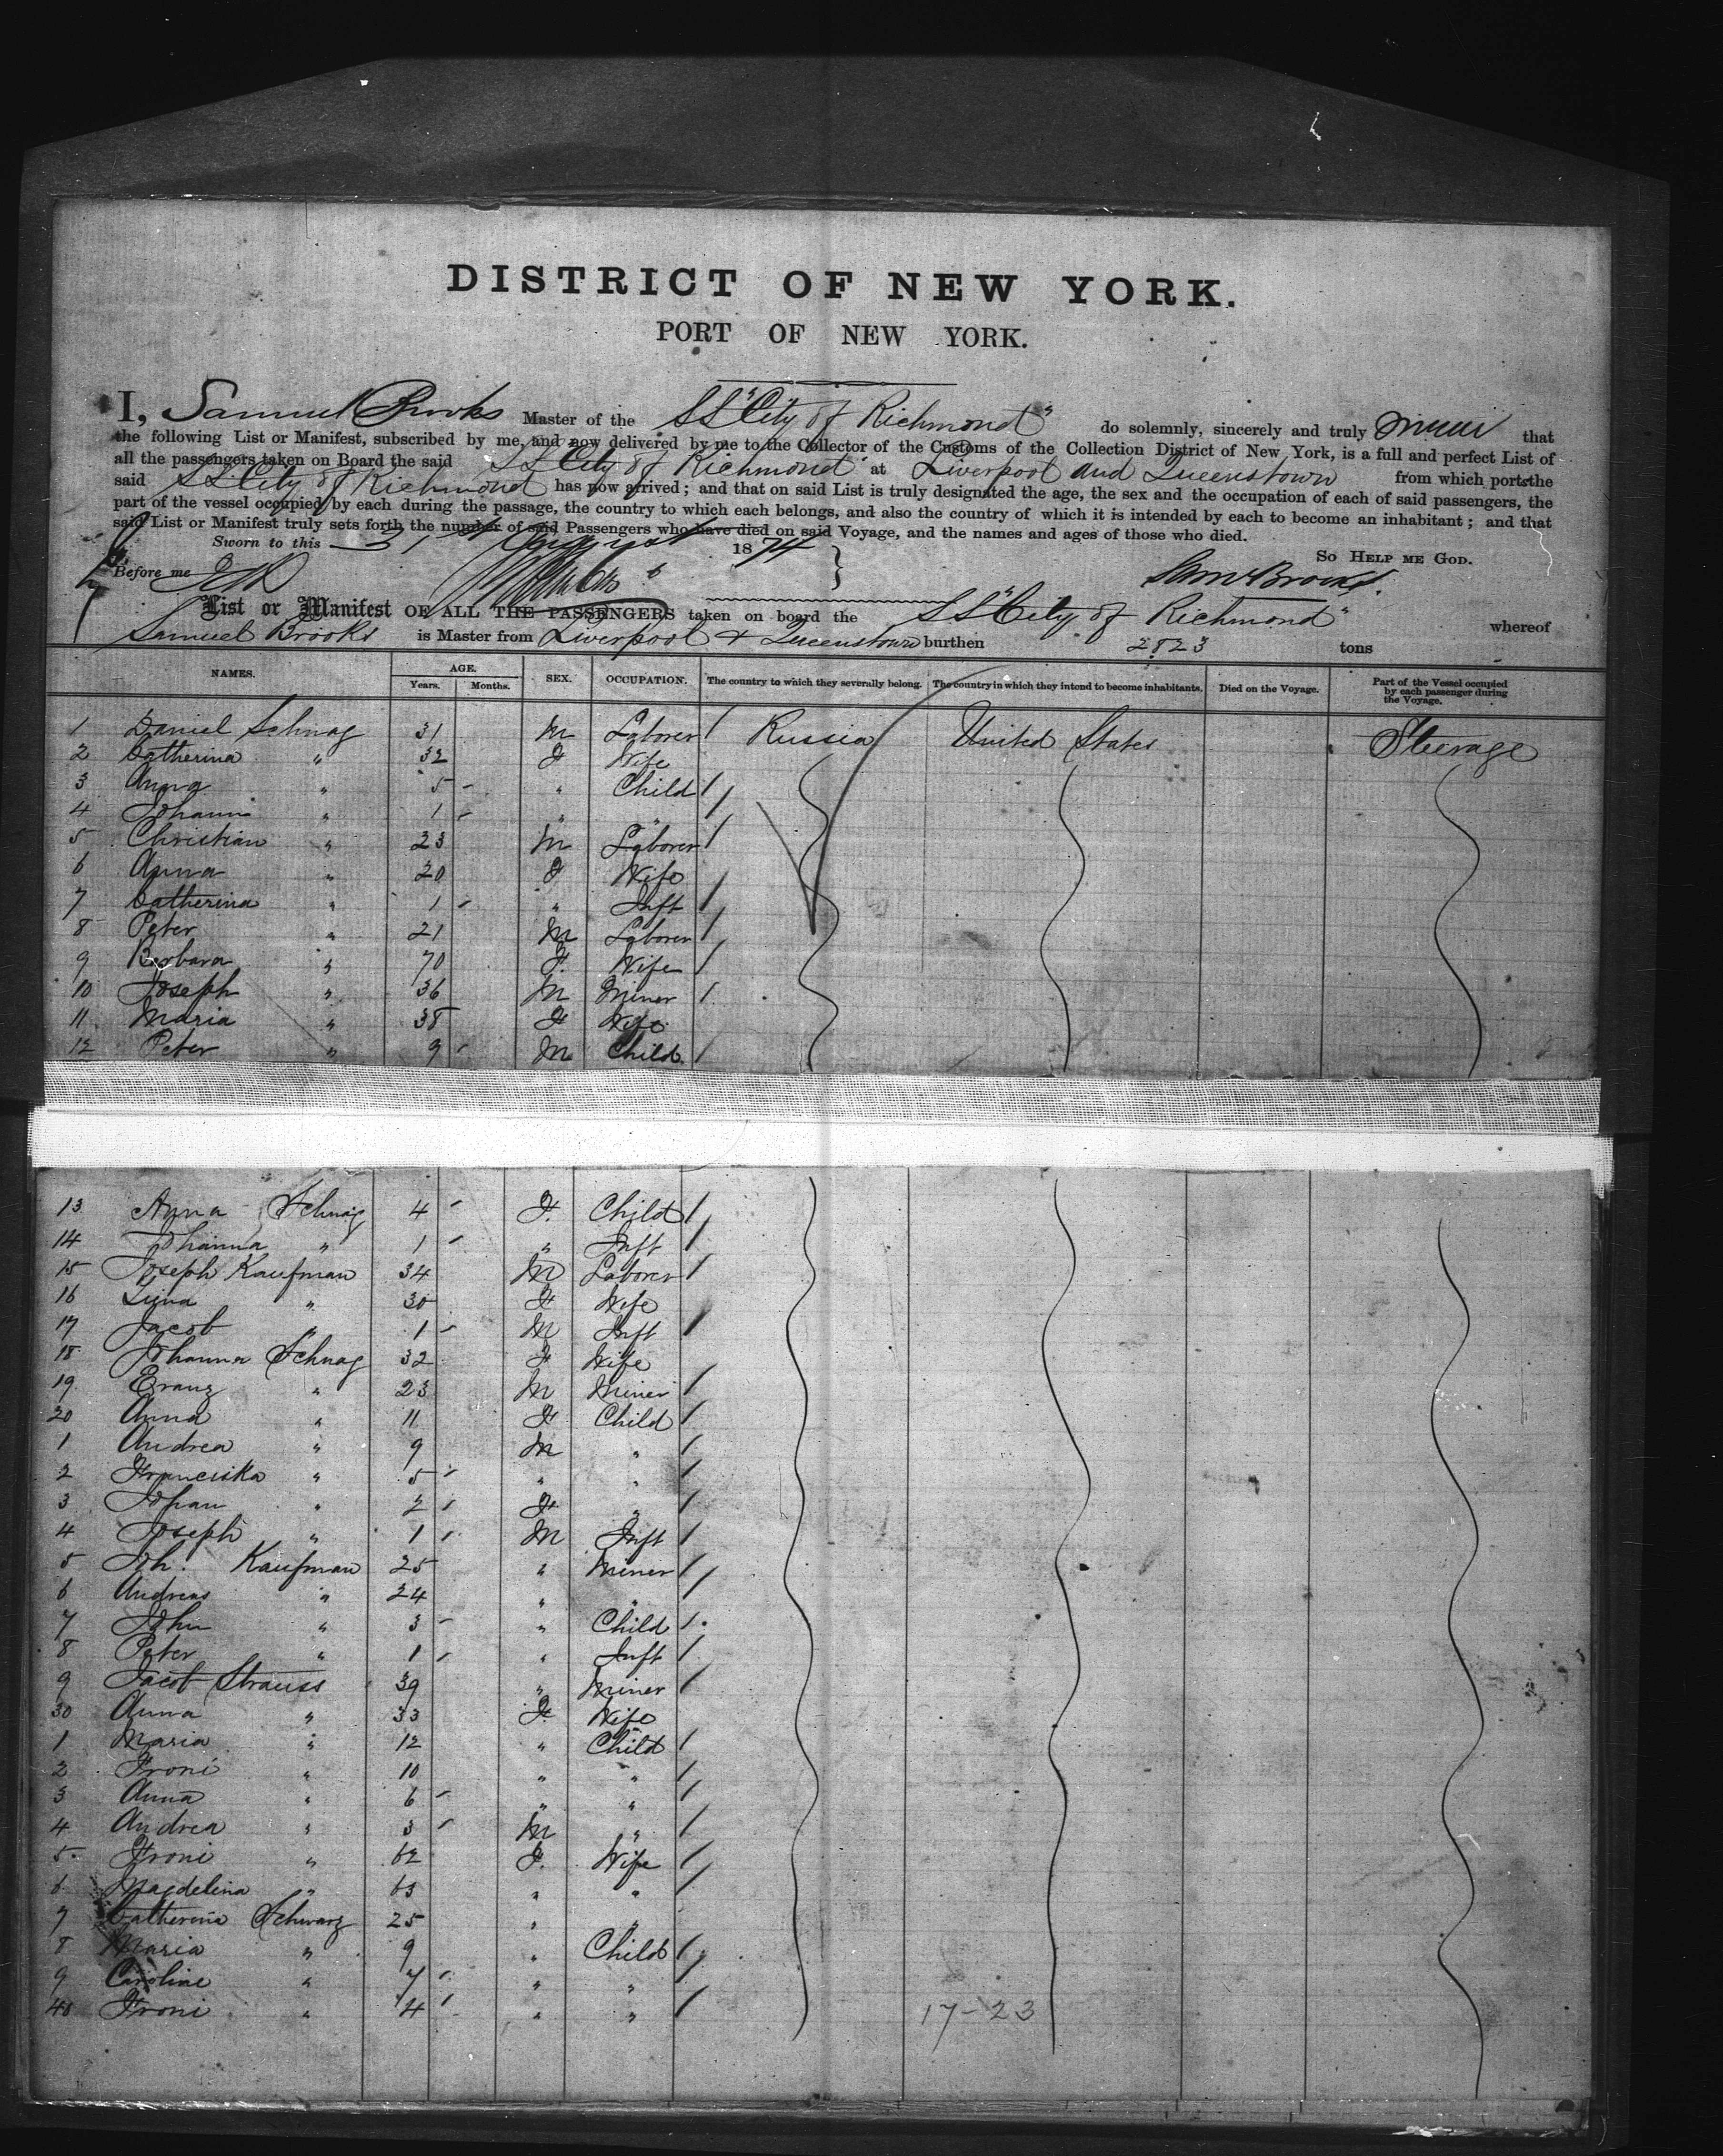 DISTRICT OF NEW YORK.
PORT OF NEW YORK.
I, Samuel Brooks Master of the SS "City of Richmond" do solemnly, sincerely and truly that
the following List or Manifest, subscribed by me, and now delivered by me to the Collector of the Customs of the Collection District of New York, is a full and perfect List of
all the passengers taken on Board the said SS City of Richmond at Liverpool and Queenstown from which ports the
said SS City of Richmond has now arrived; and that on said List is truly designated the age, the sex and the occupation of each of said passengers, the
part of the vessel occupied by each during the passage, the country to which each belongs, and also the country of which it is intended by each to become an inhabitant; and that
said List or Manifest truly sets forth the number of said Passengers who have died on said Voyage, and the names and ages of those who died.
Sworn to this 31st August 1874 So Help me God.
Before me Saml Brooks.
List or Manifest OF ALL THE PASSENGERS taken on board the SS "City of Richmond" whereof
Samuel Brooks is Master from Liverpool & Queenstown burthen 2823 tons
NAMES. AGE. Years. Months. SEX. OCCUPATION. The country to which they severally belong. The country in which they intend to become inhabitants. Died on the Voyage. Part of the Vessel occupied by each passenger during the Voyage.
1 Daniel Schnag 31 M Laborer Russia United States Steerage
2 Catherina " 32 F Wife
3 Anna " 5 " Child
4 Johann " 1 " "
5 Christian " 23 M Laborer
6 Anna " 20 F Wife
7 Catherina " 1 " Inft
8 Peter " 21 M Laborer
9 Barbara " 70 F. Wife
10 Joseph " 36 M Miner
11 Maria " 38 F Wife
12 Peter " 9 M Child
13 Anna Schnag 4 F. Child
14 Johanna " 1 " Inft
15 Joseph Kaufman 34 M Laborer
16 " 30 F Wife
17 Jacob " 1 M Inft
18 Johanna Schnag 32 F Wife
19 Franz " 23 M Miner
20 Anna " 11 F Child
1 Andrea " 9 M "
2 Franciska " 5 " "
3 Johan " 2 F "
4 Joseph " 1 M Inft
5 Joh. Kaufman 25 " Miner
6 Andreas " 24 " "
7 John " 3 " Child
8 Peter " 1 " Inft
9 Jacob Strauss 39 " Miner
30 Anna " 33 F. Wife
1 Maria " 12 " Child
2 Froni " 10 " "
3 Anna " 6 " "
4 Andrea " 3 M "
5 Froni " 62 F. Wife
6 Magdelina " 63 " "
7 Catherina Schwarz 25 " "
8 Maria " 9 " Child
9 Caroline " 7 " "
40 Froni " 4 " "
17-23